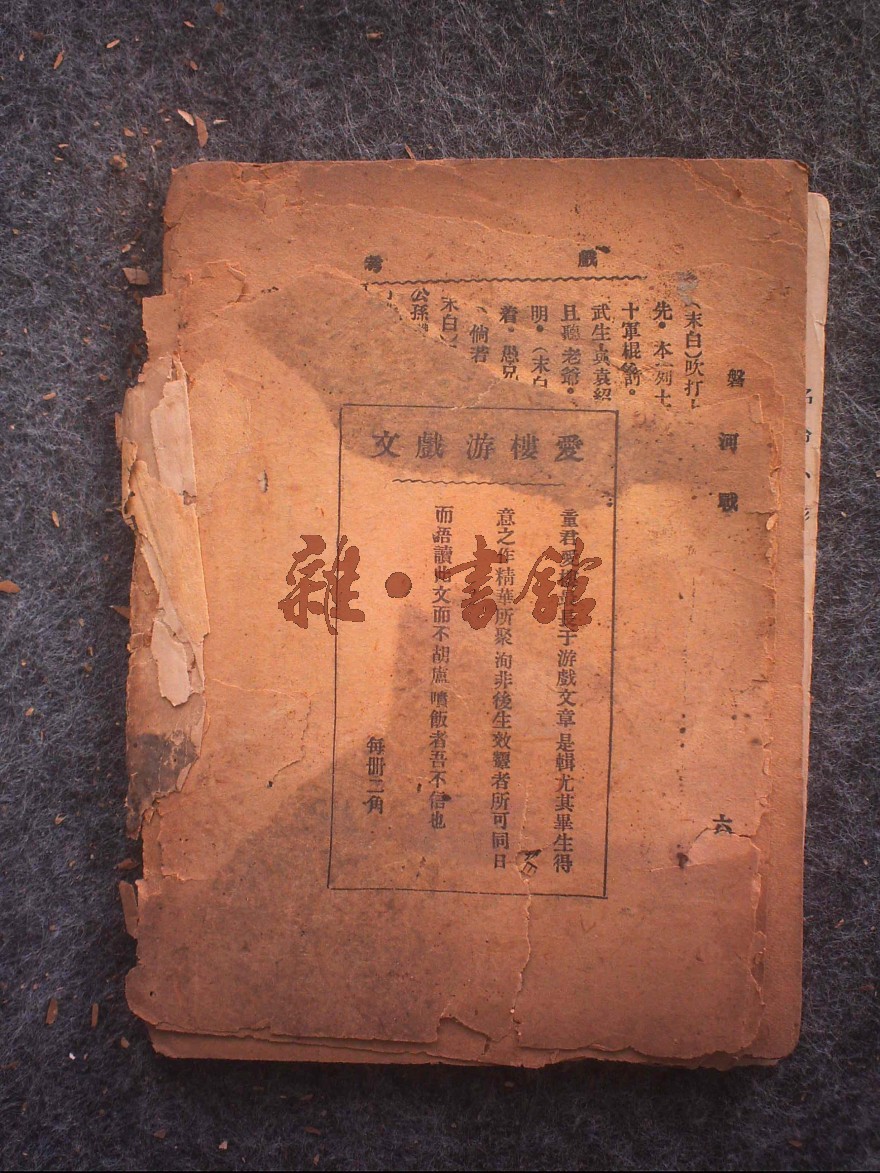 戲考
磐河戰
六
(末白)吹打
先。本列十
十軍棍
武生。袁紹
且聽老爺。
明。(末白
着。愚兄
倘若
末白)
公孫
愛樓游戲文
童君愛樓 于游戲文章是輯尤其畢生得
意之作精華所聚洵非後生效顰者所可同日
而語讀此文而不胡盧噴飯者吾不信也
每冊二角
雜·書館